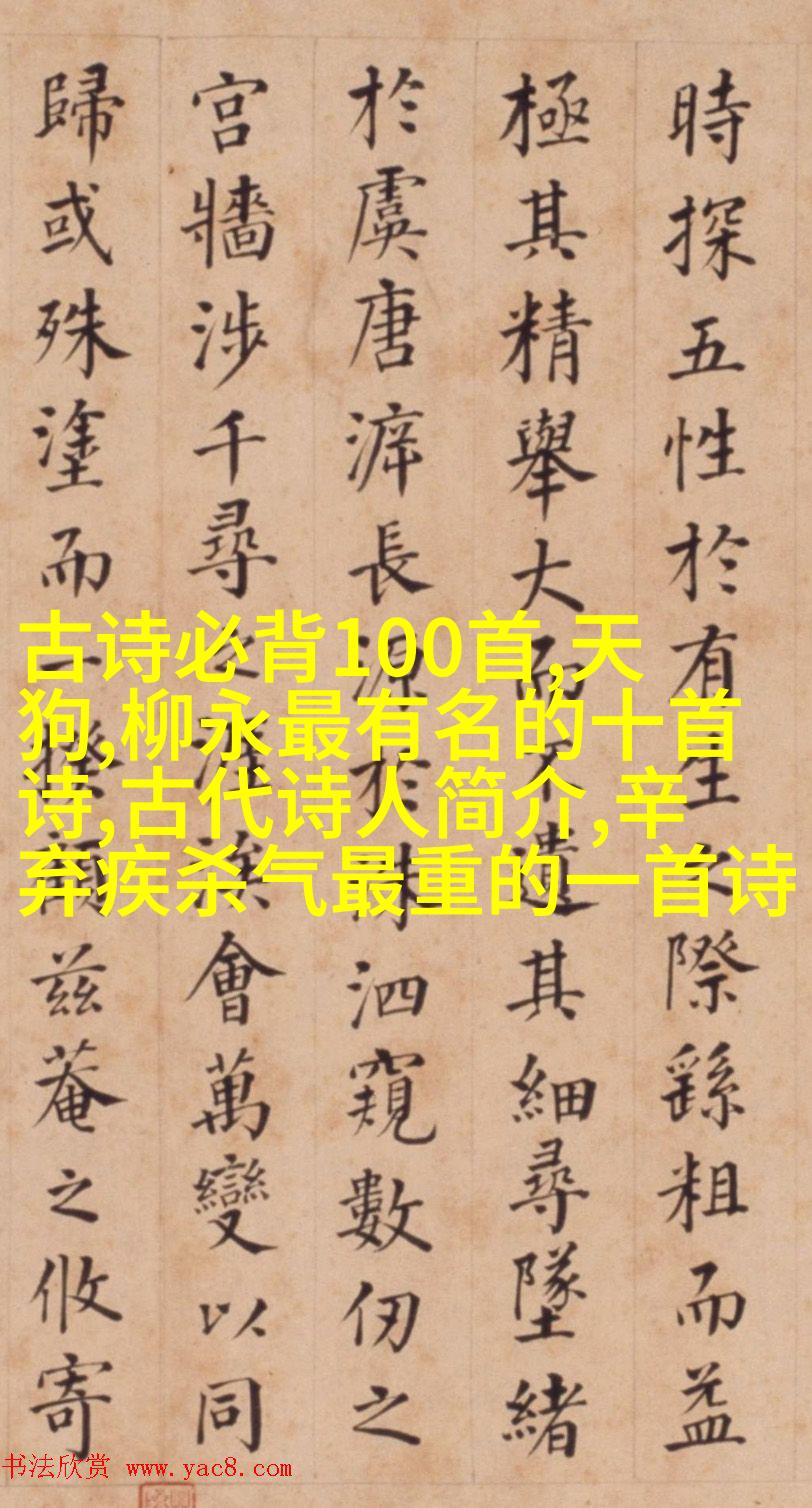 時探五性於有生之際繇粗而益
極其精舉大而不遺其細尋墜緒
於虞唐長源於洙泗窺數仞之
宮牆涉千尋之涘會萬變以同
歸或殊塗而一揆顧兹菴之攸寄
古诗必背100首,天
狗,柳永最有名的十首
诗,古代诗人简介,辛
弃疾杀气最重的一首诗
书法欣赏 www.yac8.com